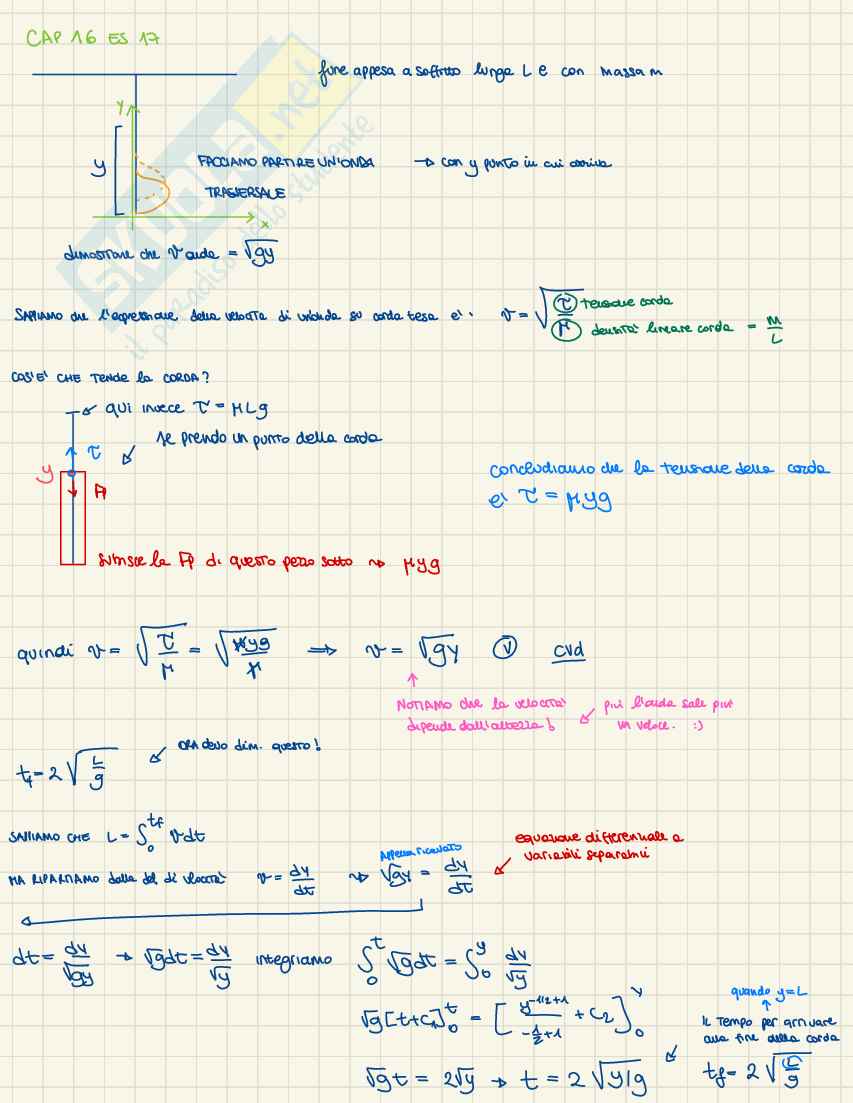 CAP 16 ES 17
fune appesa a soffitto lunga L e con massa m
y
y
FACCIAMO PARTIRE UN'ONDA → con y punto in cui arriva
TRASVERSALE
x
SKUOLA.net
il paradiso dello studente
dimostrare che v onda = √gy
SAPPIAMO che l'espressione della velocità di un'onda su corda tesa è: v = √τ/μ
τ tensione corda
μ densità lineare corda = m/L
COS'È CHE TENDE la CORDA?
qui invece τ = μLg
se prendo un punto della corda
τ
y
Fp
subisce la Fp di questo pezzo sotto ⇝ μyg
concludiamo che la tensione della corda
è τ = μyg
quindi v = √τ/μ = √μyg/μ ⇒ v = √gy V cvd
NOTIAMO che la velocità
dipende dall'altezza!
più l'onda sale più
va veloce. :)
tf = 2√L/g
ORA devo dim. questo!
SAPPIAMO CHE L = ∫₀^tf v dt
MA RIPARTIAMO dalla def. di velocità v = dy/dt ⇝ √gy = dy/dt
Appena ricavato
equazione differenziale a
variabili separabili
dt = dy/√gy → √g dt = dy/√y integriamo ∫₀^t √g dt = ∫₀^y dy/√y
√g [t+c₁]₀^t = [y^(-1/2+1)/(-1/2+1) + c₂]₀^y
quando y=L
il tempo per arrivare
alla fine della corda
√g t = 2√y → t = 2√y/g
tf = 2√L/g